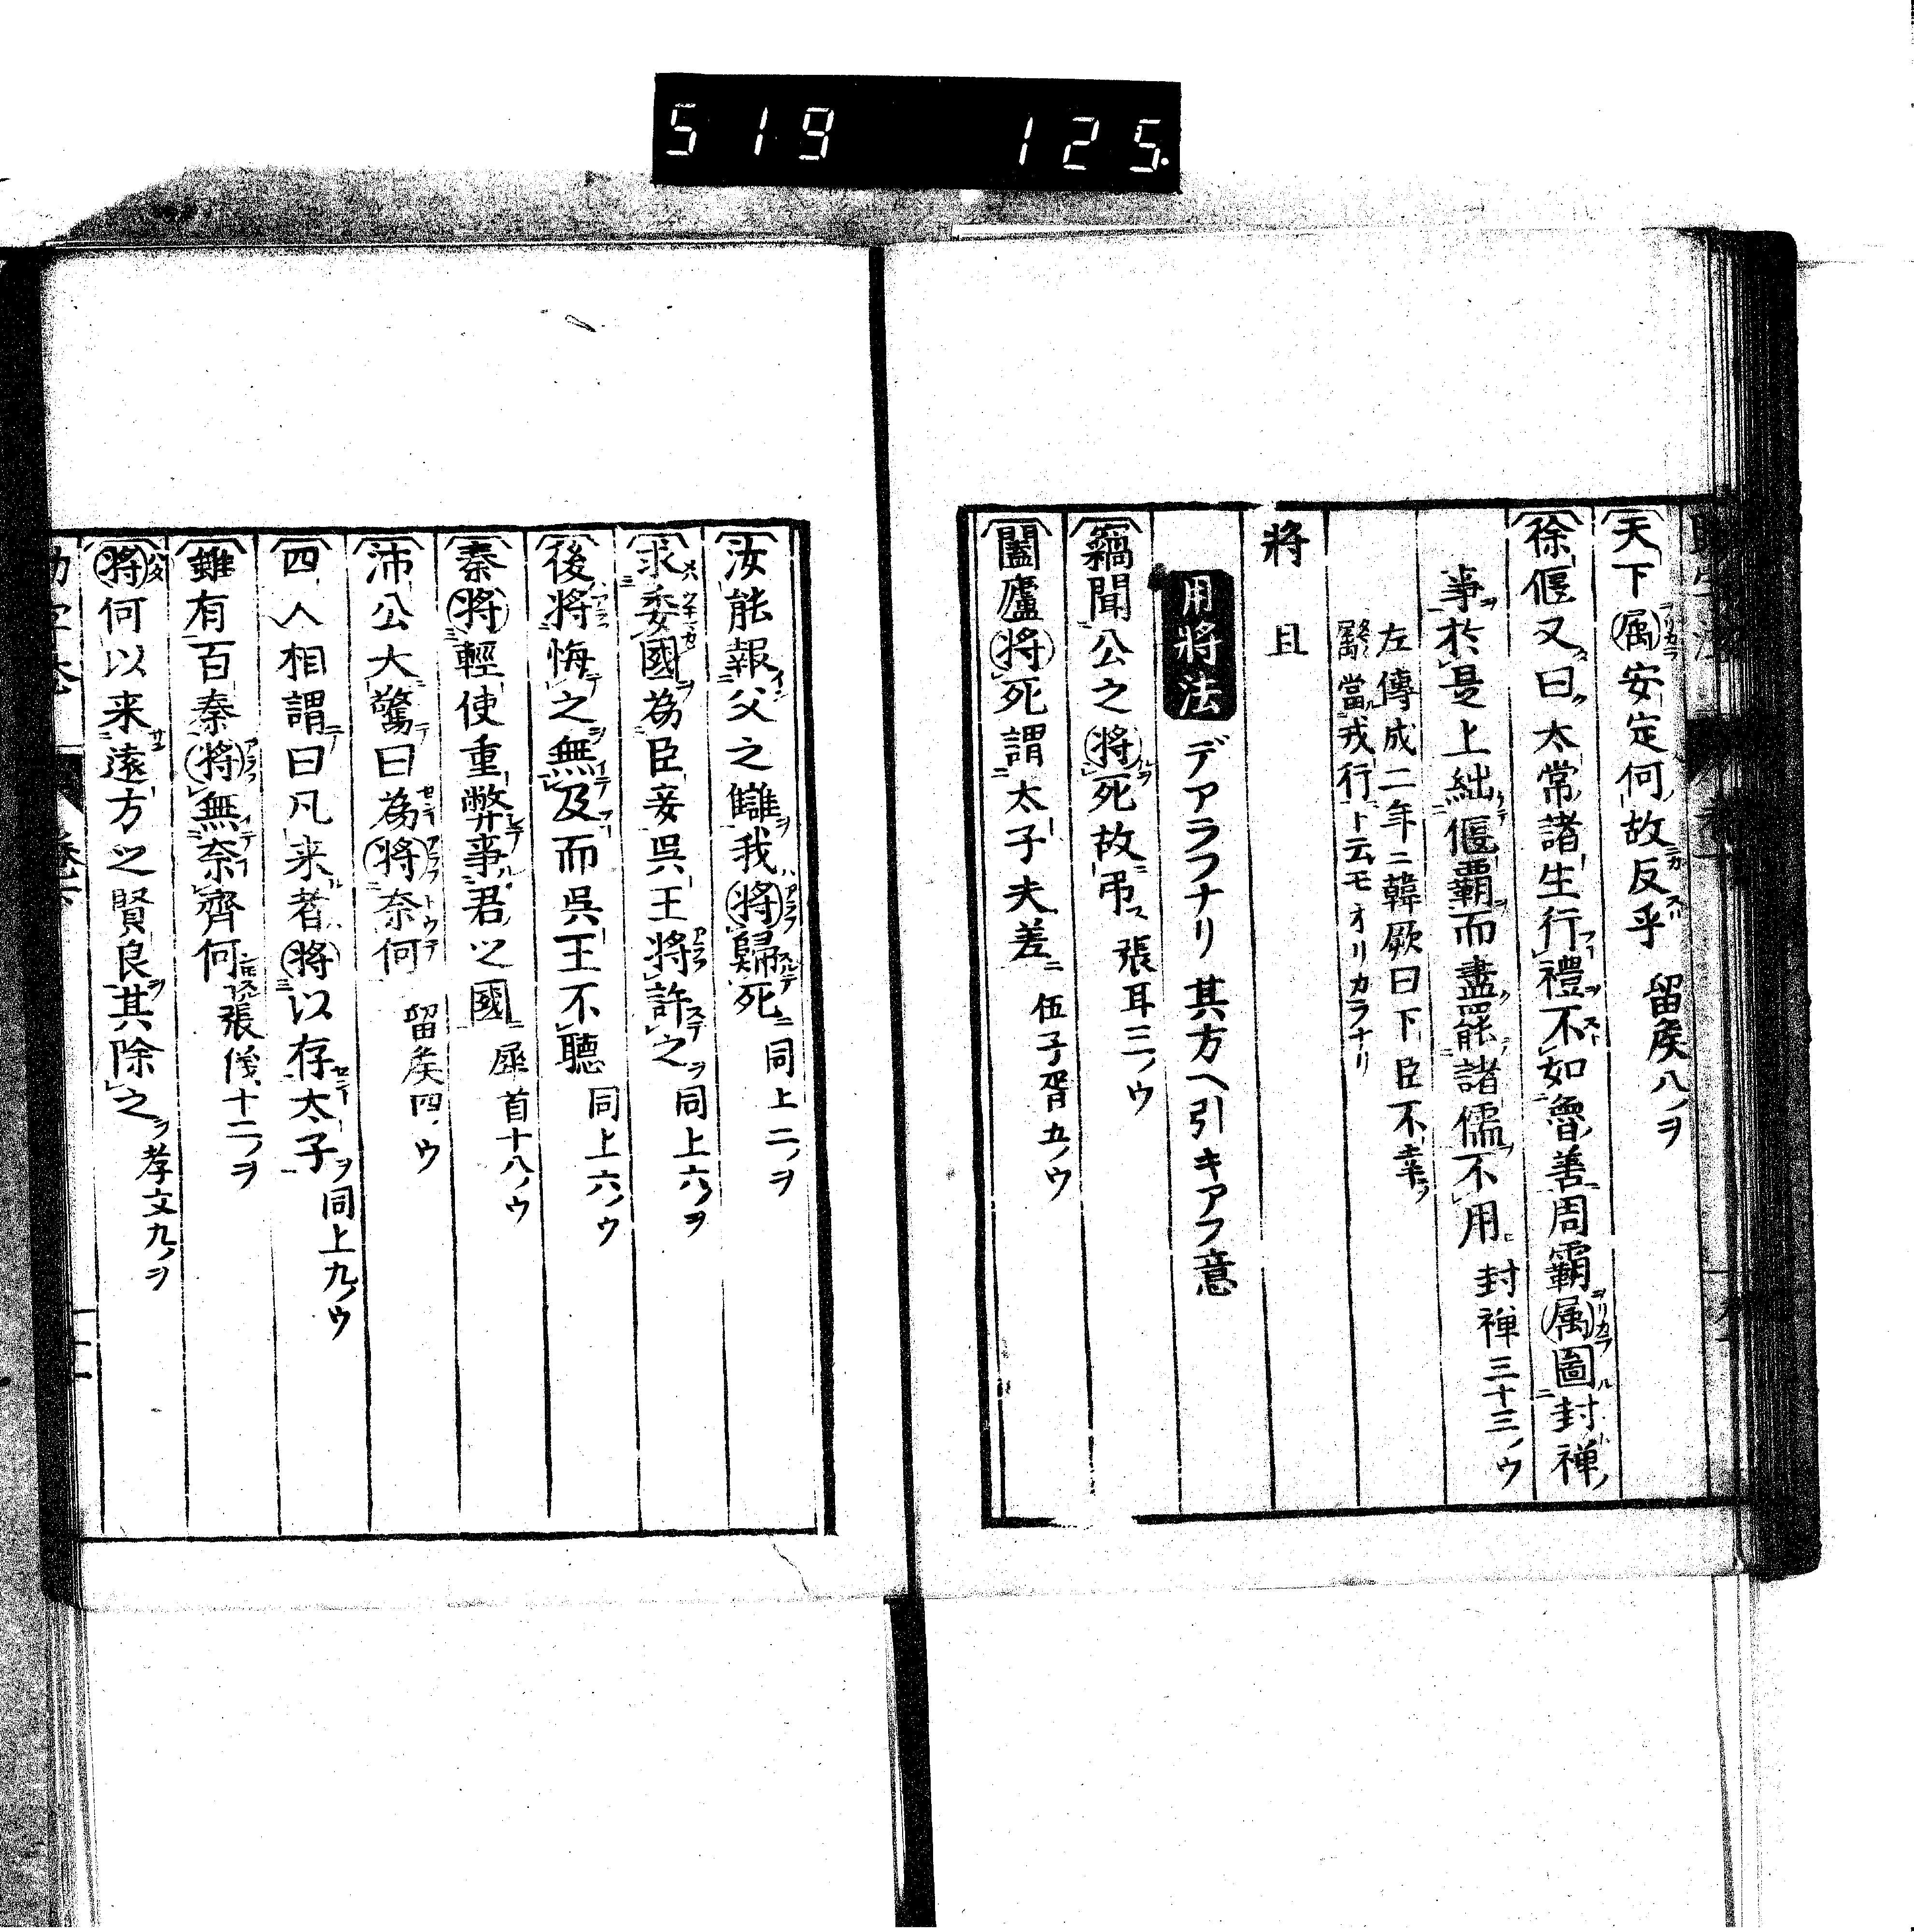 519 125
天下属安定何故反乎 留矦八ノヲ
徐偃又曰太常諸生行禮不如魯善周霸属圖封禅
事於是上絀偃霸而盡罷諸儒不用 封禅三十三ノウ
左傳成二年ニ韓厥曰下臣不幸
属當戎行ト云モオリカラナリ
將 且
用將法 デアラフナリ 其方ヘ引キアフ意
竊聞公之將死故弔 張耳三ノウ
闔廬將死謂太子夫差 伍子胥五ノウ
汝能報父之讎我將歸死 同上二ノヲ
求委國為臣妾呉王將許之 同上六ノヲ
後將悔之無及而呉王不聽 同上六ノウ
秦將輕使重弊事君之國 犀首十八ノウ
沛公大驚曰為將奈何 留矦四ノウ
四人相謂曰凡来者將以存太子 同上九ノウ
雖有百秦將無奈齊何 張儀十二ノヲ
將何以来遠方之賢良其除之 孝文九ノヲ